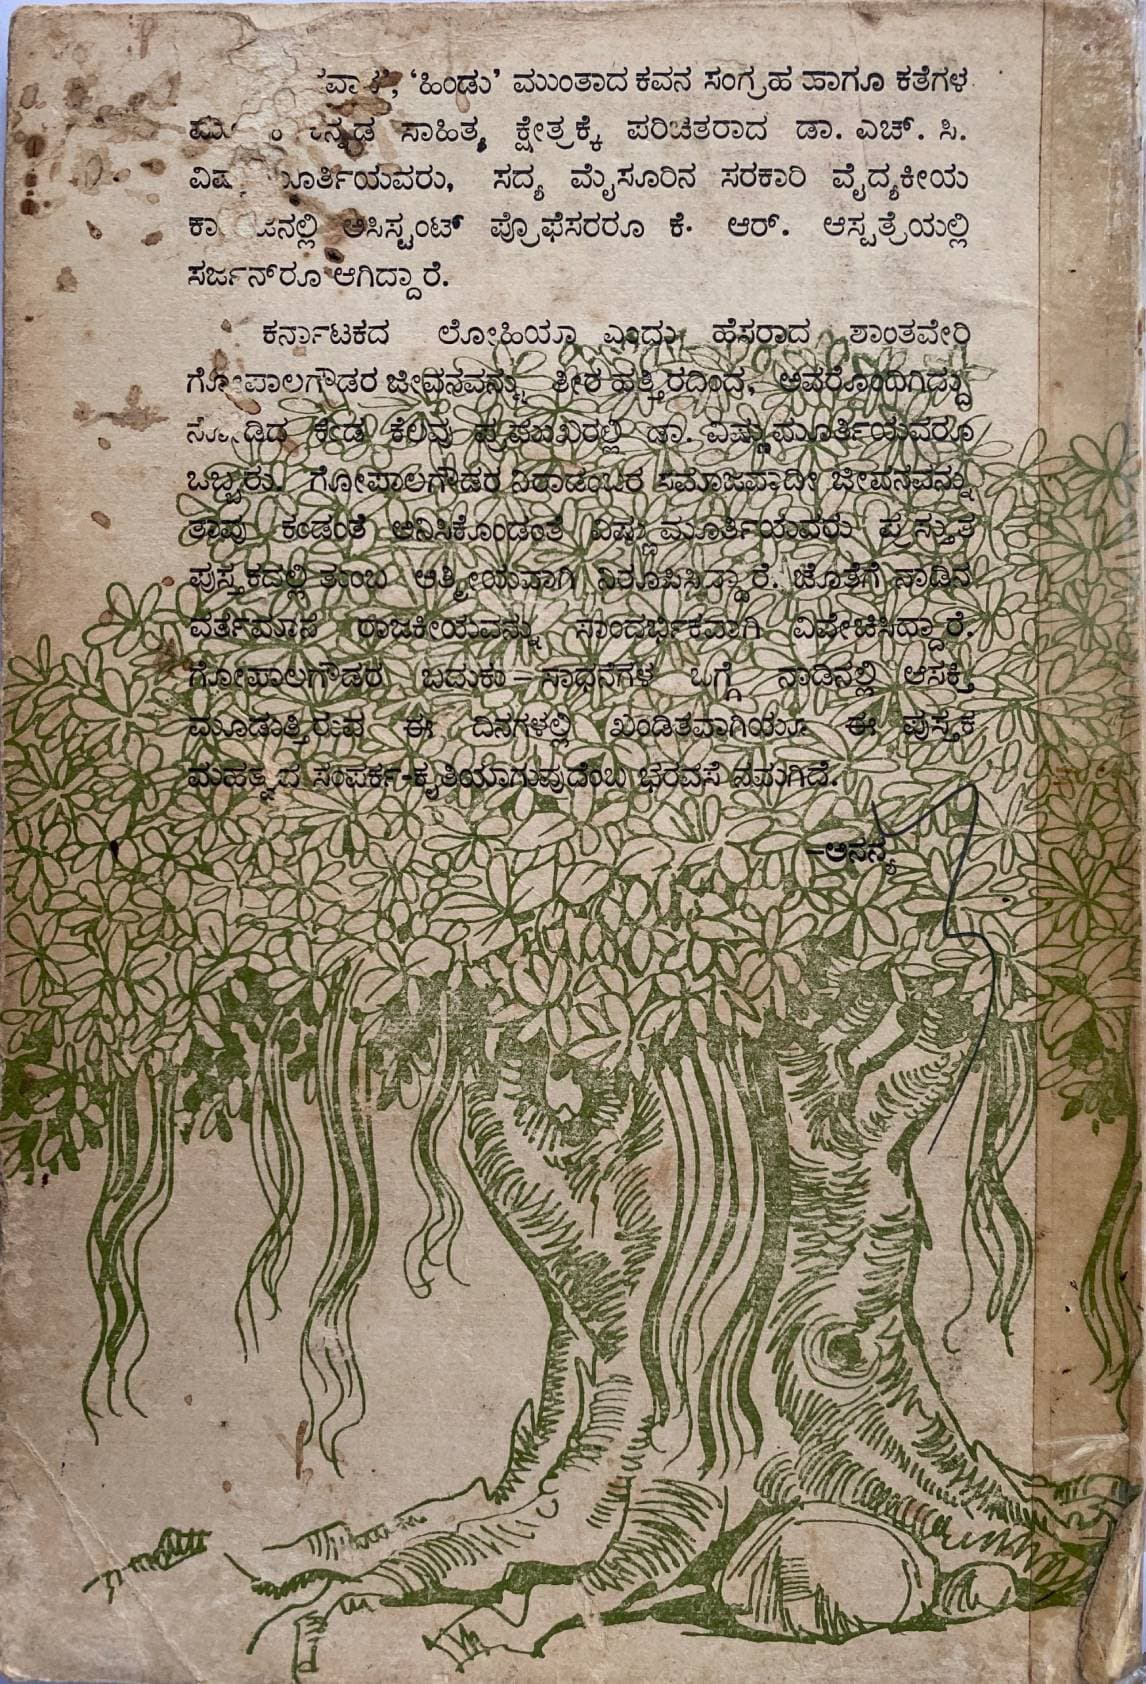 ‘ಹಿಂಡು’ ಮುಂತಾದ ಕವನ ಸಂಗ್ರಹ ಹಾಗೂ ಕತೆಗಳ
ಸಾಹಿತ್ಯ ಕ್ಷೇತ್ರಕ್ಕೆ ಪರಿಚಿತರಾದ ಡಾ. ಎಚ್. ಸಿ.
ಸದ್ಯ ಮೈಸೂರಿನ ಸರಕಾರಿ ವೈದ್ಯಕೀಯ
ಅಸಿಸ್ಟಂಟ್ ಪ್ರೊಫೆಸರರೂ ಕೆ. ಆರ್. ಆಸ್ಪತ್ರೆಯಲ್ಲಿ
ಸರ್ಜನ್‌ರೂ ಆಗಿದ್ದಾರೆ.
ಕರ್ನಾಟಕದ ಲೋಹಿಯಾ ಎಂದು ಹೆಸರಾದ ಶಾಂತವೇರಿ
ಗೋಪಾಲಗೌಡರ ಜೀವನವನ್ನು ತೀರ ಹತ್ತಿರದಿಂದ, ಅವರೊಂದಿಗಿದ್ದು
ನೋಡಿದ ಕೆಲವು ಪ್ರಮುಖರಲ್ಲಿ ಡಾ. ವಿಷ್ಣುಮೂರ್ತಿಯವರೂ
ಒಬ್ಬರು. ಗೋಪಾಲಗೌಡರ ನಿರಾಡಂಬರ ಸಮಾಜವಾದೀ ಜೀವನವನ್ನು
ತಾವು ಕಂಡಂತೆ ಅನಿಸಿಕೊಂಡಂತೆ ವಿಷ್ಣುಮೂರ್ತಿಯವರು ಪ್ರಸ್ತುತ
ಪುಸ್ತಕದಲ್ಲಿ ತುಂಬ ಆತ್ಮೀಯವಾಗಿ ನಿರೂಪಿಸಿದ್ದಾರೆ. ಜೊತೆಗೆ ನಾಡಿನ
ವರ್ತಮಾನ ರಾಜಕೀಯವನ್ನು ಸಾಂದರ್ಭಿಕವಾಗಿ ವಿವೇಚಿಸಿದ್ದಾರೆ.
ಗೋಪಾಲಗೌಡರ ಬದುಕು–ಸಾಧನೆಗಳ ಬಗ್ಗೆ ನಾಡಿನಲ್ಲಿ ಆಸಕ್ತಿ
ಮೂಡುತ್ತಿರುವ ಈ ದಿನಗಳಲ್ಲಿ ಖಂಡಿತವಾಗಿಯೂ ಈ ಪುಸ್ತಕ
ಮಹತ್ವದ ಸಂಪರ್ಕ-ಕೃತಿಯಾಗುವುದೆಂಬ ಭರವಸೆ ನಮಗಿದೆ.
–ಅನನ್ಯ